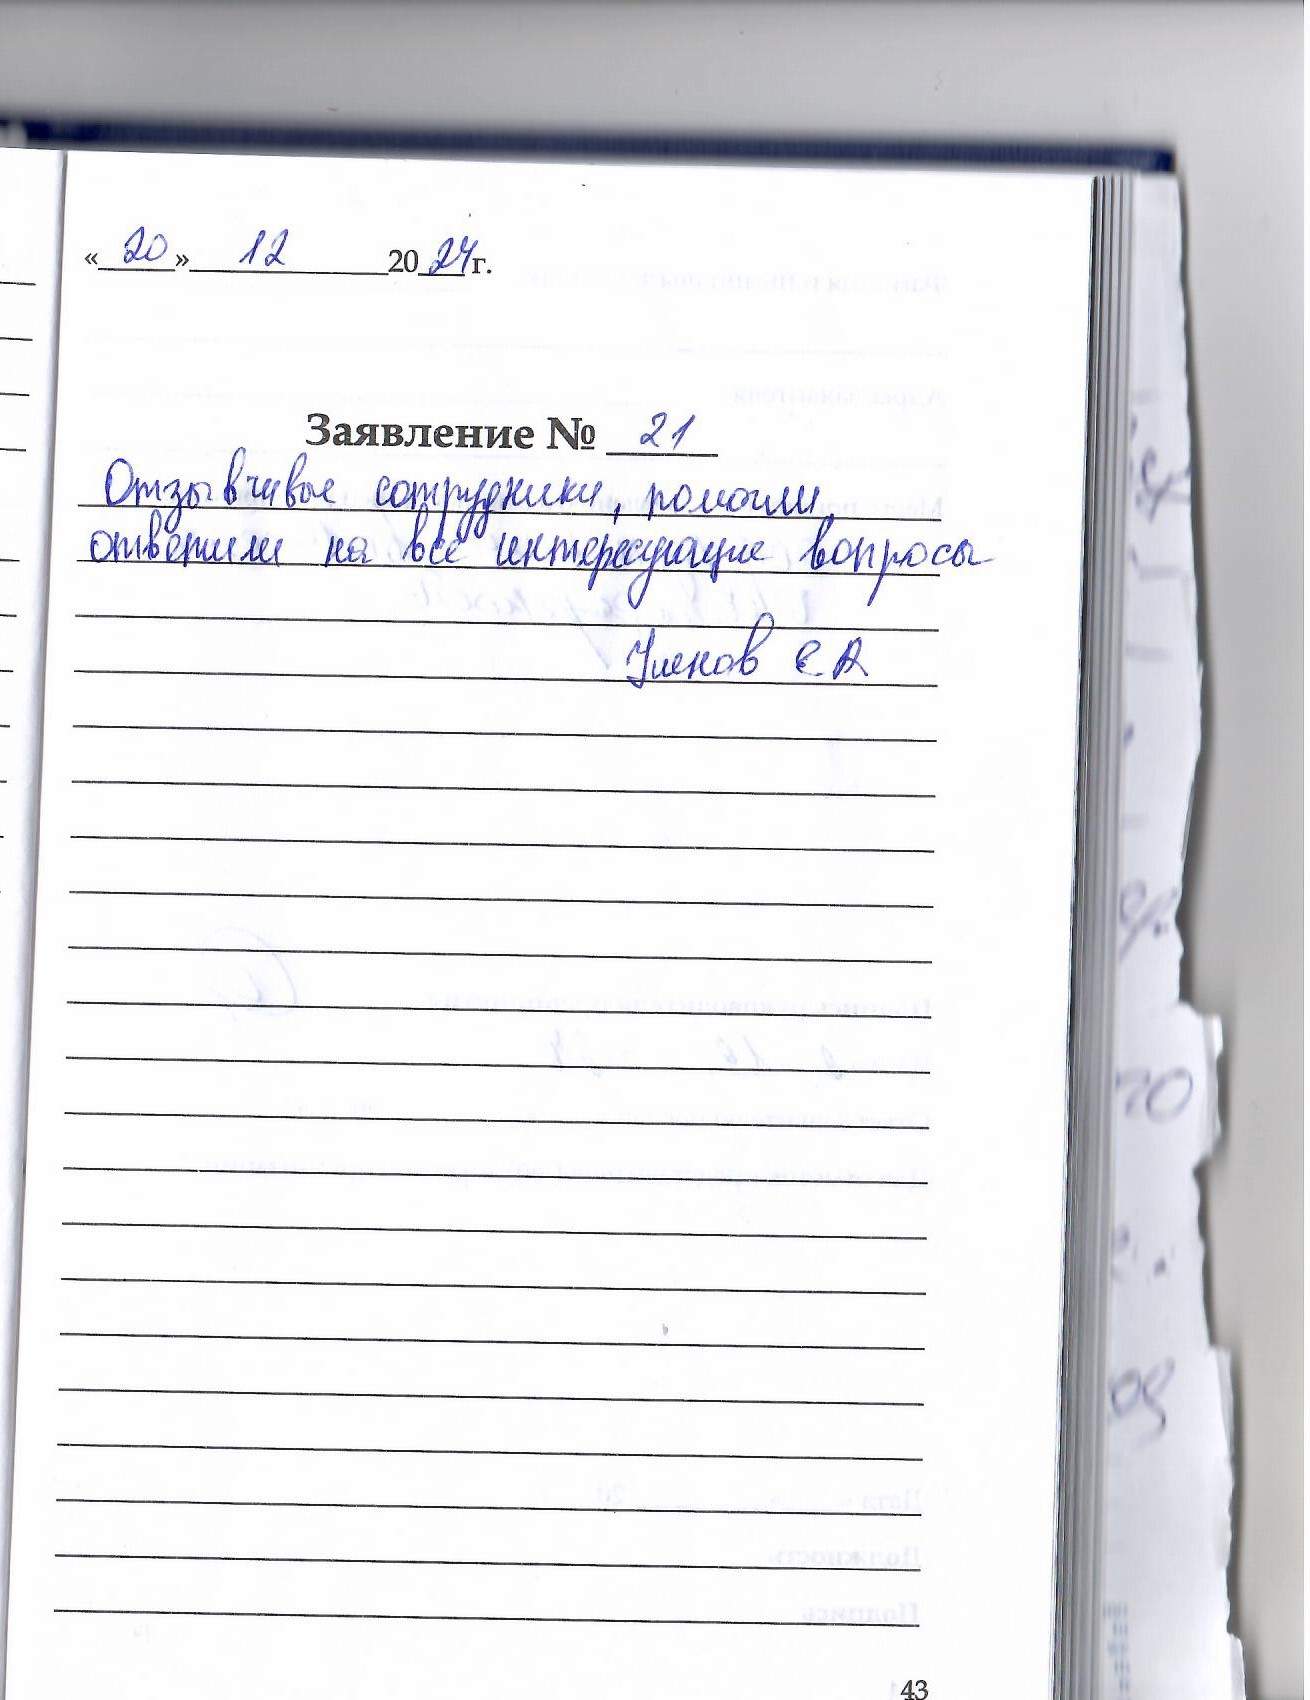 « 20 » 12 2024 г.
Заявление № 21
Отзывчивые сотрудники, помогли,
ответили на все интересующие вопросы
Е А
43